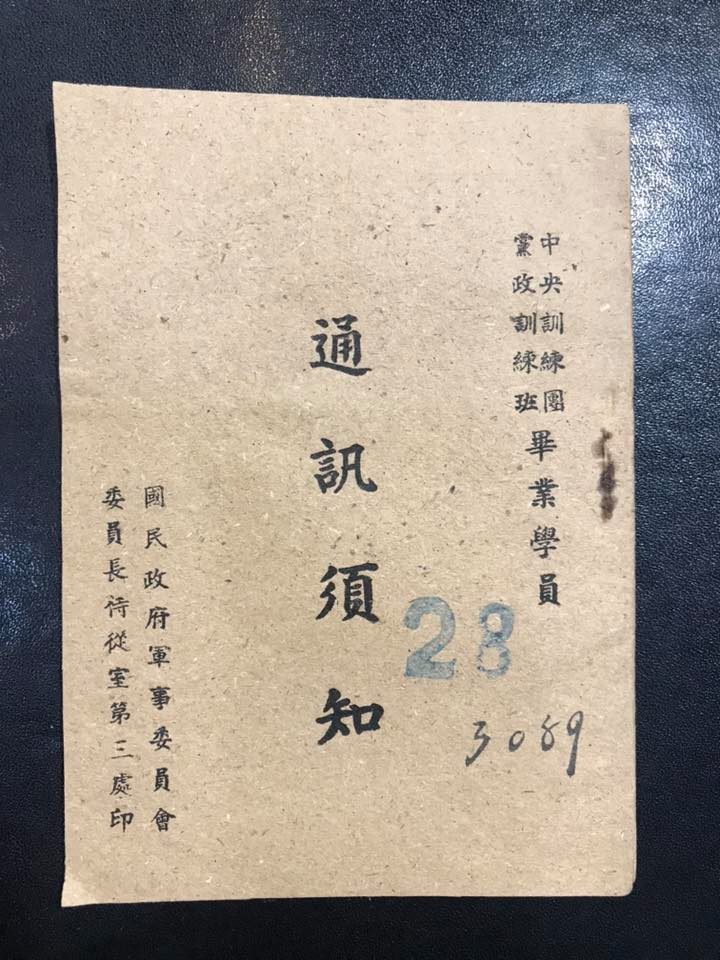 中央訓練團
黨政訓練班
畢業學員
通訊須知
28
3089
國民政府軍事委員會
委員長侍從室第三處印